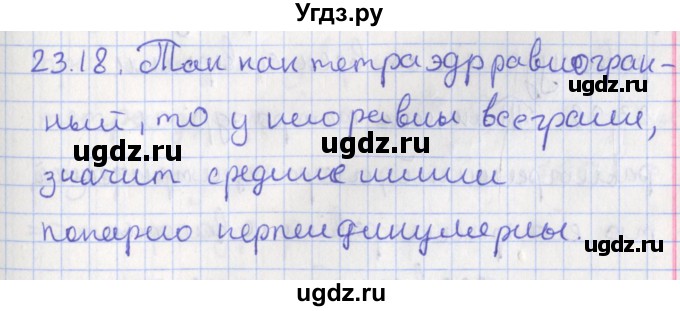 Угдз.ру
23.18. Так как тетраэдр равногран-
ный, то у него равны все грани,
ugdz.ru ugdz.ru
значит средние линии
ugdz.ru
попарно перпендикулярны.
ugdz.ru
ugdz.ru